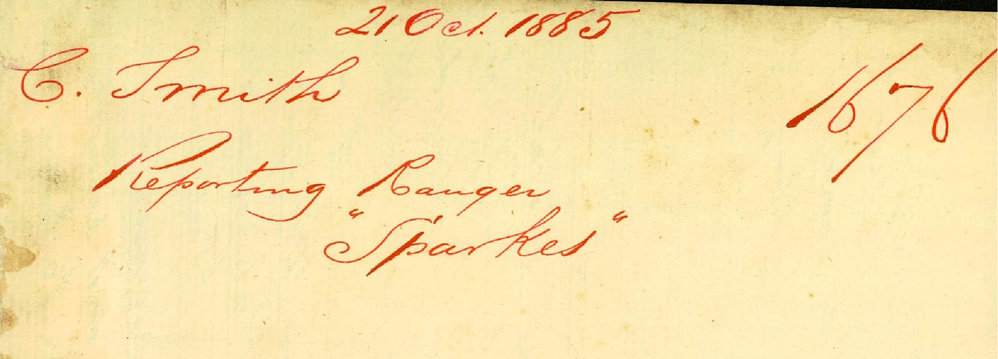 21 Oct. 1885
C. Smith
1676
Reporting Ranger
"Sparkes"